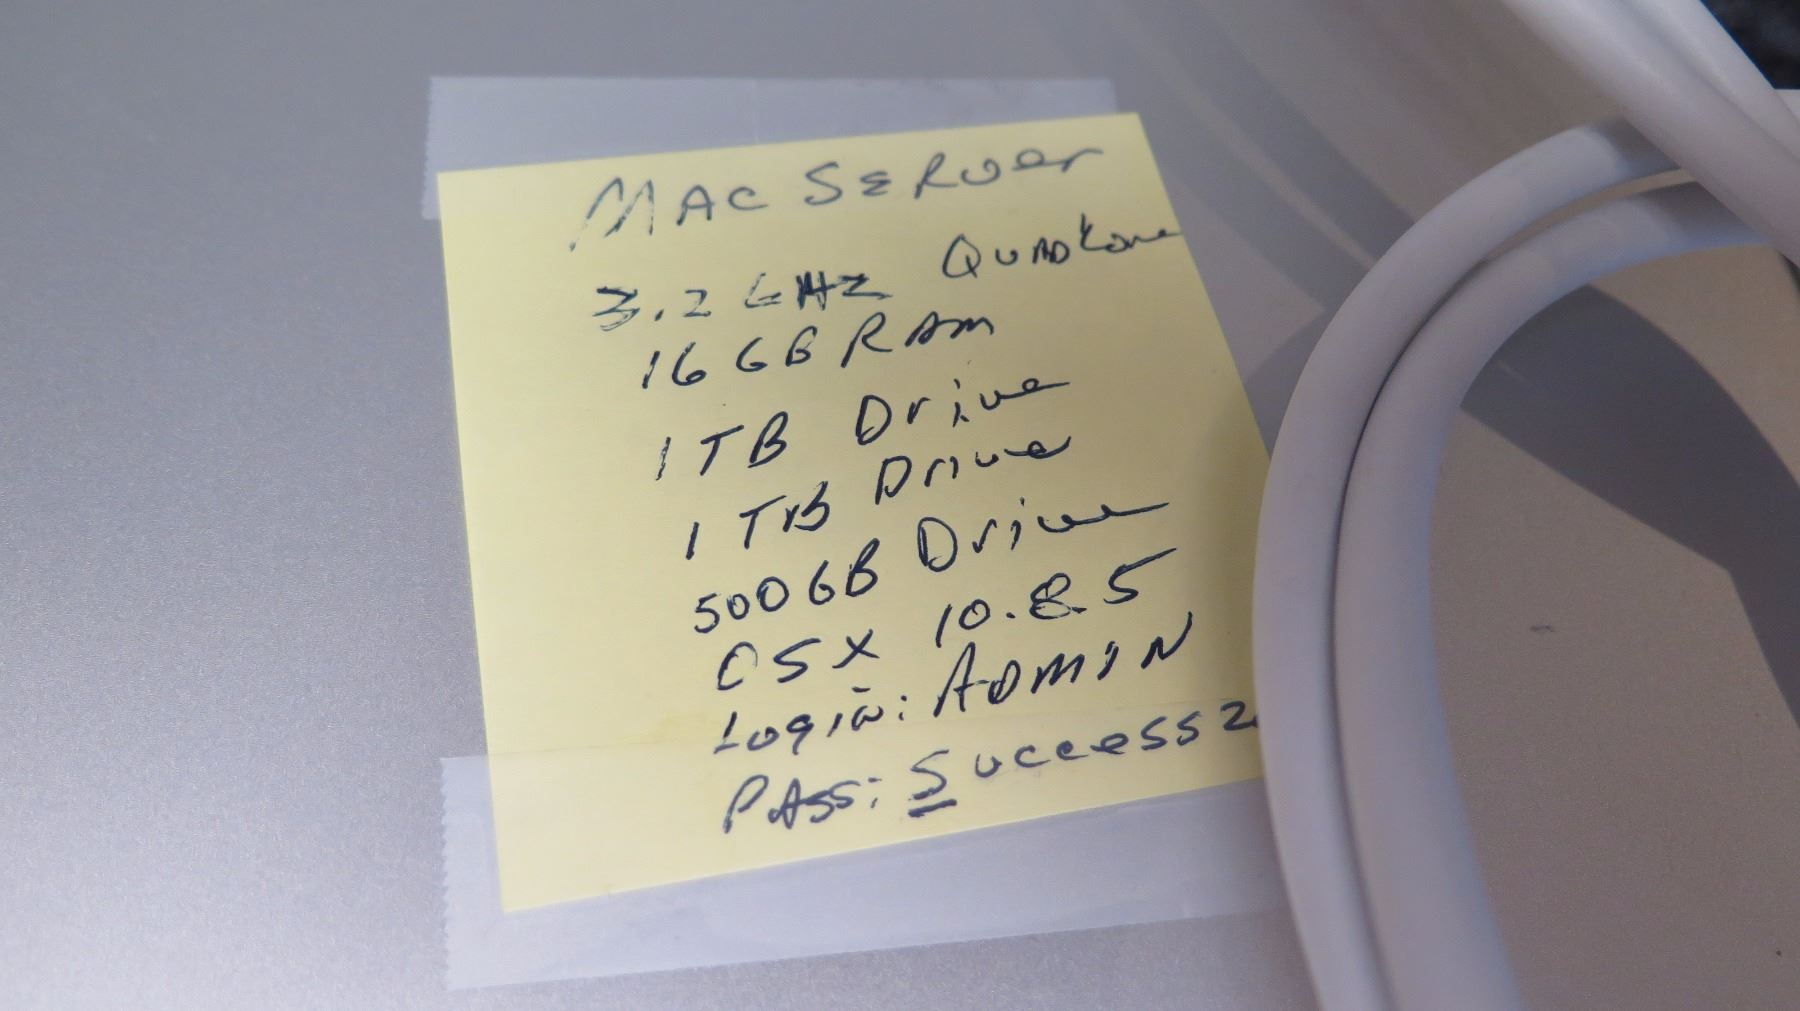 MAC SERVer
3.2 GHZ QUADKore
16 GB RAM
1 TB Drive
1 TB Drive
500 GB Drive
OSX 10.8.5
Login: ADMIN
PASS: Success2